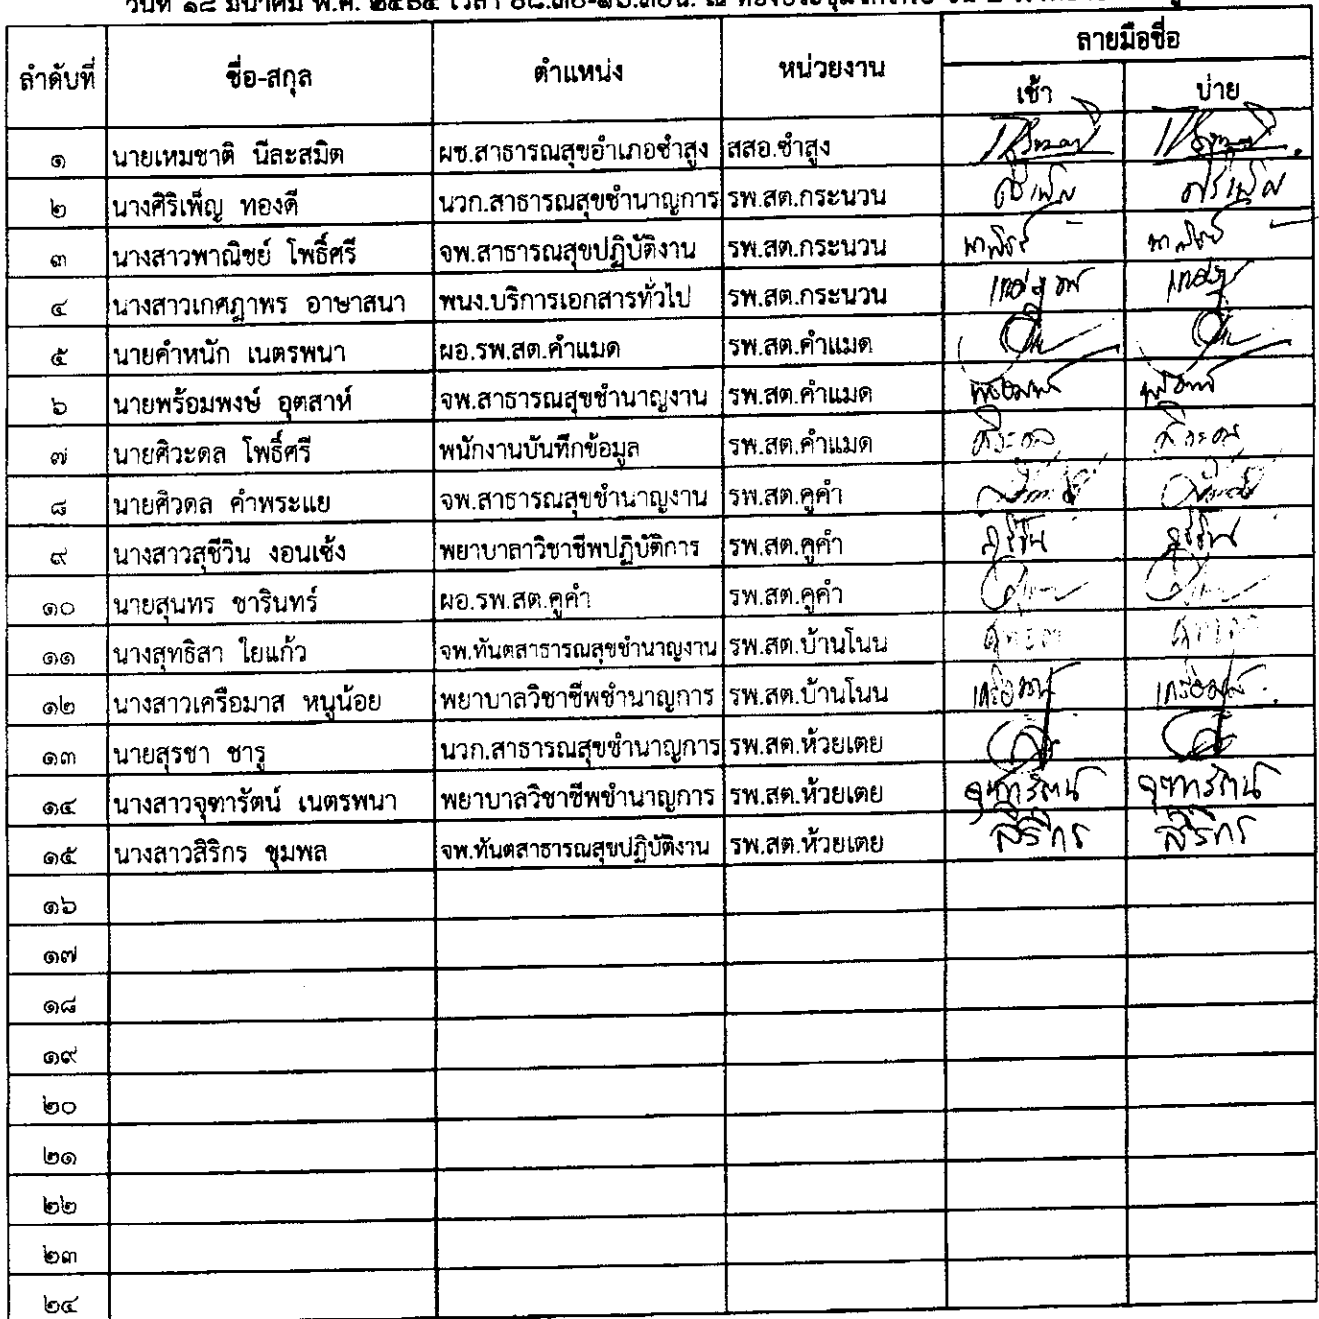 วันที่ ๑๘ มีนาคม พ.ศ. ๒๕๖๔ เวลา ๐๘.๓๐-๑๖.๓๐น. ณ ห้องประชุม ชั้น ๒
ลำดับที่ ชื่อ-สกุล ตำแหน่ง หน่วยงาน ลายมือชื่อ
เช้า บ่าย
๑ นายเหมชาติ นีละสมิต ผช.สาธารณสุขอำเภอซำสูง สสอ.ซำสูง
๒ นางศิริเพ็ญ ทองดี นวก.สาธารณสุขชำนาญการ รพ.สต.กระนวน ศิริเพ็ญ ศิริเพ็ญ
๓ นางสาวพาณิชย์ โพธิ์ศรี จพ.สาธารณสุขปฏิบัติงาน รพ.สต.กระนวน พาณิชย์ พาณิชย์
๔ นางสาวเกศฎาพร อาษาสนา พนง.บริการเอกสารทั่วไป รพ.สต.กระนวน
๕ นายคำหนัก เนตรพนา ผอ.รพ.สต.คำแมด รพ.สต.คำแมด
๖ นายพร้อมพงษ์ อุตสาห์ จพ.สาธารณสุขชำนาญงาน รพ.สต.คำแมด
๗ นายศิวะดล โพธิ์ศรี พนักงานบันทึกข้อมูล รพ.สต.คำแมด ศิวะดล ศิวะดล
๘ นายศิวดล คำพระแย จพ.สาธารณสุขชำนาญงาน รพ.สต.คูคำ
๙ นางสาวสุชีวิน งอนเซ้ง พยาบาลาวิชาชีพปฏิบัติการ รพ.สต.คูคำ
๑๐ นายสุนทร ชารินทร์ ผอ.รพ.สต.คูคำ รพ.สต.คูคำ
๑๑ นางสุทธิสา ใยแก้ว จพ.ทันตสาธารณสุขชำนาญงาน รพ.สต.บ้านโนน
๑๒ นางสาวเครือมาส หนูน้อย พยาบาลวิชาชีพชำนาญการ รพ.สต.บ้านโนน
๑๓ นายสุรชา ชารู นวก.สาธารณสุขชำนาญการ รพ.สต.ห้วยเตย
๑๔ นางสาวจุฑารัตน์ เนตรพนา พยาบาลวิชาชีพชำนาญการ รพ.สต.ห้วยเตย จุฑารัตน์ จุฑารัตน์
๑๕ นางสาวสิริกร ชุมพล จพ.ทันตสาธารณสุขปฏิบัติงาน รพ.สต.ห้วยเตย สิริกร สิริกร
๑๖
๑๗
๑๘
๑๙
๒๐
๒๑
๒๒
๒๓
๒๔